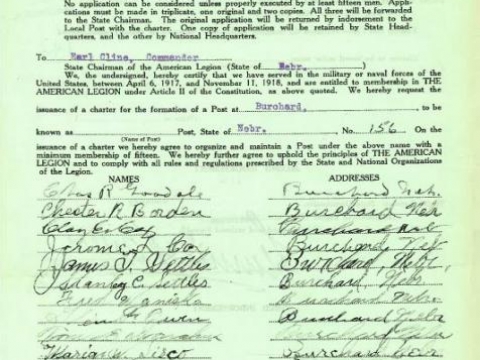 No application can be considered unless properly executed by at least fifteen men. Appli-
cations must be made in triplicate, one original and two copies. All three will be forwarded
to the State Chairman. The original application will be returned by indorsement to the
Local Post with the charter. One copy of application will be retained by State Head-
quarters, and the other by National Headquarters.
To Earl Cline, Commander
State Chairman of the American Legion (State of Nebr. )
We, the undersigned, hereby certify that we have served in the military or naval forces of the
United States, between April 6, 1917, and November 11, 1918, and are entitled to membership in THE
AMERICAN LEGION under Article II of the Constitution, as above quoted. We hereby request
the
issuance of a charter for the formation of a Post at Burchard. to be
known as Post, State of Nebr. No. 156 On the
(Name of Post)
issuance of a charter we hereby agree to organize and maintain a Post under the above name with a
minimum membership of fifteen. We hereby further agree to uphold the principles of THE AMERICAN
LEGION and to comply with all rules and regulations prescribed by the State and National Organizations
of the Legion.
NAMES ADDRESSES
Chas R Goodale Burchard Neb.
Chester R Borden Burchard Neb
Cox Burchard Neb
Jerome L Cox Burchard Neb
James T. Burchard, Nebr.
C Burchard Nebr.
Fred Burchard Nebr.
Burchard
Marion Burchard Neb